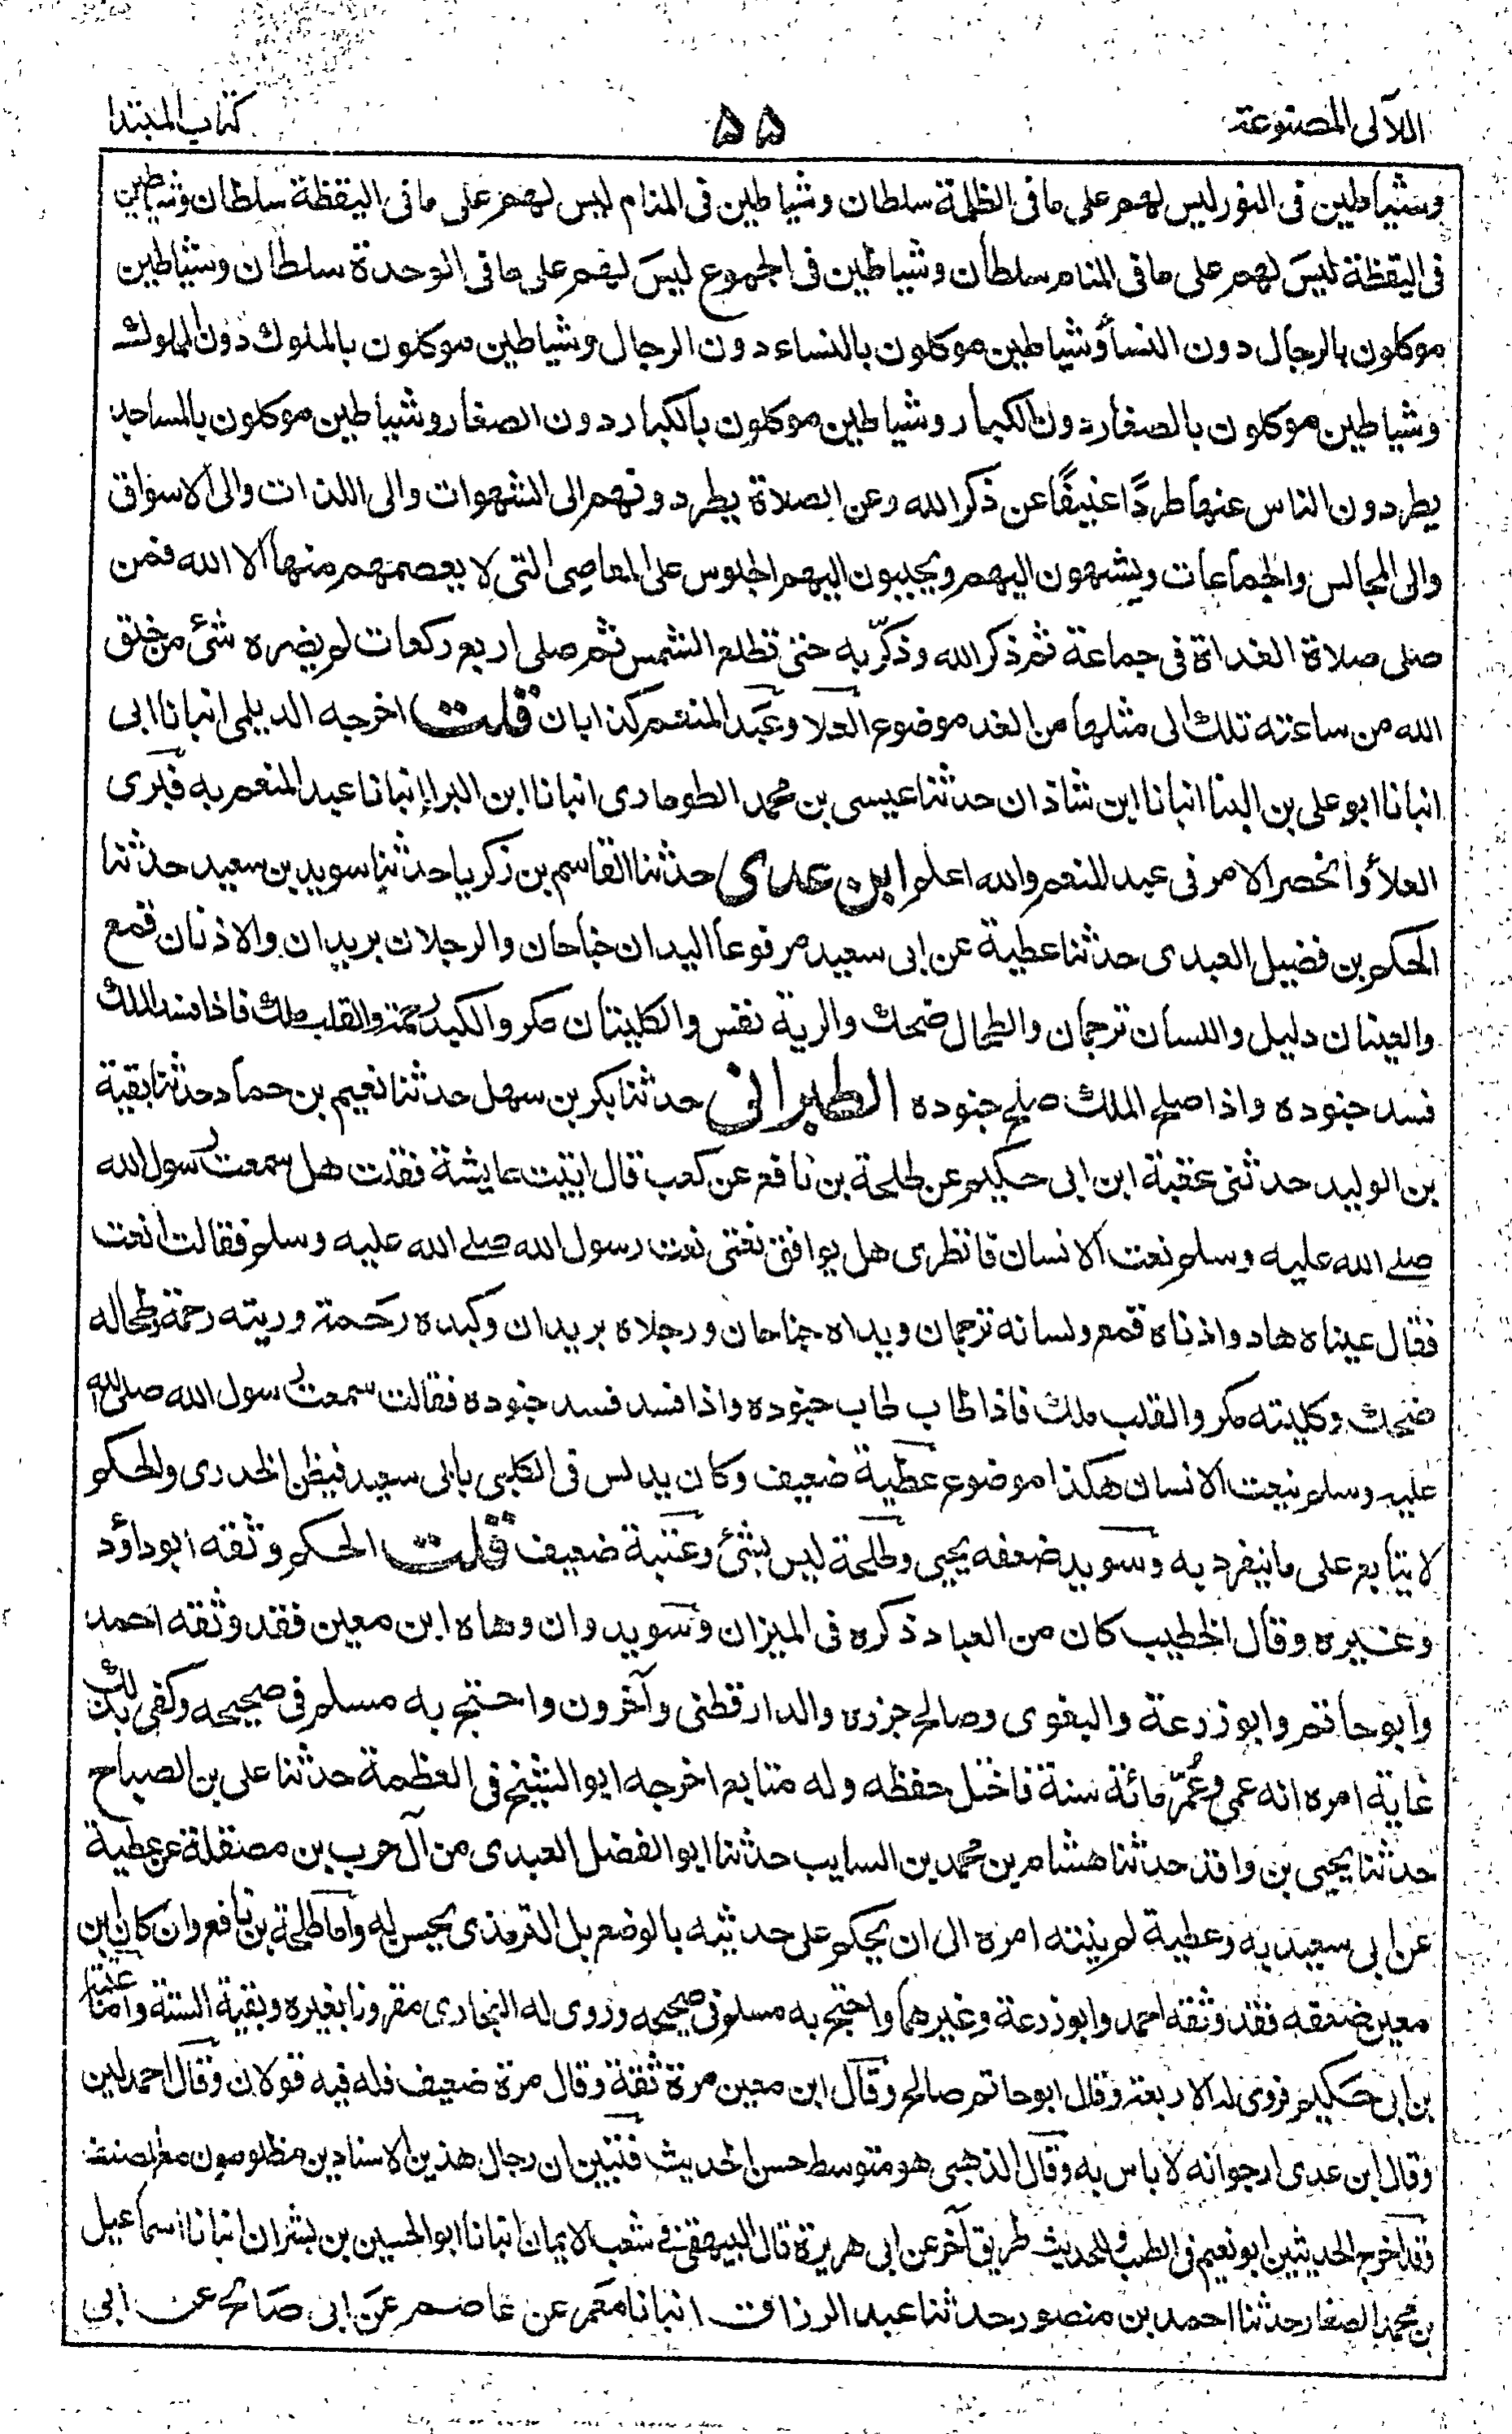 اللآلى المصنوعة
۵۵
كتاب المبتدا
وشياطين فى النور ليس لهم على ما فى الظلمة سلطان وشياطين فى المنام ليس لهم على ما فى اليقظة سلطان وشياطين
فى اليقظة ليسَ لهم على ما فى المنام سلطان وشياطين فى الجموع ليسَ لهم على ما فى الوحدة سلطان وشياطين
موكلون بالرجال دون النسأ وشياطين موكلون بالنساء دون الرجال وشياطين موكلون بالملوك دون المملوك
وشياطين موكلون بالصغار دون الكبار وشياطين موكلون بالكبار دون الصغار وشياطين موكلون بالمساجد
يطردون الناس عنها طردًا عنيفًا عن ذكر الله وعن الصلاة يطردونهم الى الشهوات والى اللذات والى الاسواق
والى المجالس والجماعات ويشهون اليهم ويحببون اليهم الجلوس على المعاصى التى لا يعصمهم منها الا الله فمن
صلى صلاة الغداة فى جماعة ثم ذكر الله وذكّر به حتى تطلع الشمس ثم صلى اربع ركعات لم يضره شئ من خلق
الله من ساعته تلك الى مثلها من الغد موضوع العلا وعبد المنعم كذابان قلت اخرجه الديلمى انبانا ابى
انبانا ابو على بن البنا انبانا ابن شاذان حدثنا عيسى بن محمد الطومارى انبانا ابن البرا انبانا عبد المنعم به فبرى
العلأ وانحصر الامر فى عبد المنعم والله اعلم ابن عدى حدثنا القاسم بن زكريا حدثنا سويد بن سعيد حدثنا
الحكم بن فضيل العبدى حدثنا عطية عن ابى سعيد مرفوعا اليدان جناحان والرجلان بريدان والاذنان قمع
والعينان دليل واللسان ترجمان والطحال ضحك والرية نفس والكليتان مكر والكبد رحمة والقلب ملك فاذا فسد الملك
فسد جنوده واذا صلح الملك صلح جنوده الطبرانى حدثنا بكر بن سهل حدثنا نعيم بن حماد حدثنا بقية
بن الوليد حدثنى عقبة ابن ابى حكيم عن طلحة بن نافع عن كعب قال اتيت عايشة فقلت هل سمعت رسول الله
صلے الله عليه وسلم نعت الانسان فانظرى هل يوافق نعتى نعت رسول الله صلے الله عليه وسلم فقالت انعت
فقال عيناه هاد واذناه قمع ولسانه ترجمان ويداه جناحان ورجلاه بريدان وكبده رحمة وريته رحمة وطحاله
ضحك وكليته مكر والقلب ملك فاذا طاب طاب جنوده واذا فسد فسد جنوده فقالت سمعت رسول الله صلى الله
عليه وسلم نيعت الانسان هكذا موضوع عطية ضعيف وكان يدلس فى الكلبى بابى سعيد فيظن الخدرى والحكم
لا يتابع على ما ينفرد به وسويد ضعفه يحيى وطلحة ليس بشئ وعتبة ضعيف قلت الحكم وثقه ابو داؤد
وغيره وقال الخطيب كان من العباد ذكره فى الميزان وسويد وان وهاه ابن معين فقد وثقه احمد
وابو حاتم وابو زرعة والبغوى وصالح جزره والدارقطنى وآخرون واحتج به مسلم فى صحيحه وكفى بذلك
غاية امره انه عمى وعُمّر مائة سنة فاختل حفظه وله متابع اخرجه ابو الشيخ فى العظمة حدثنا على بن الصباح
حدثنا يحيى بن واقد حدثنا هشام بن محمد بن السايب حدثنا ابو الفضل العبدى من آل حرب بن مصقلة عن عطية
عن ابى سعيد به وعطية لم ينته امره الى ان يحكم على حديثه بالوضع بل الترمذى يحسن له واما طلحة بن نافع وان كان ابن
معين ضعفه فقد وثقه احمد وابو زرعة وغيرهما واحتج به مسلم فى صحيحه وروى له البخارى مقرونا بغيره وبقية الستة واما عتبة
بن ابى حكيم فروى له الاربعة وقال ابو حاتم صالح وقال ابن معين مرة ثقة وقال مرة ضعيف فله فيه قولان وقال احمد لين
وقال ابن عدى ارجو انه لا باس به وقال الذهبى هو متوسط حسن الحديث فتبين ان رجال هذين الاسنادين مظلومون مع المصنف
وقد اخرج الحديثين ابو نعيم فى الطب وللحديث طريق آخر عن ابى هريرة قال البيهقى فے شعب الايمان انبانا ابو الحسين بن بشران انبانا اسماعيل
بن محمد الصفار حدثنا احمد بن منصور حدثنا عبد الرزاق انبانا معمر عن عاصم عن ابى صالح عن ابى